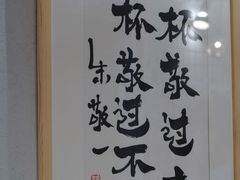 杯敬过
杯敬过不
朱敬一